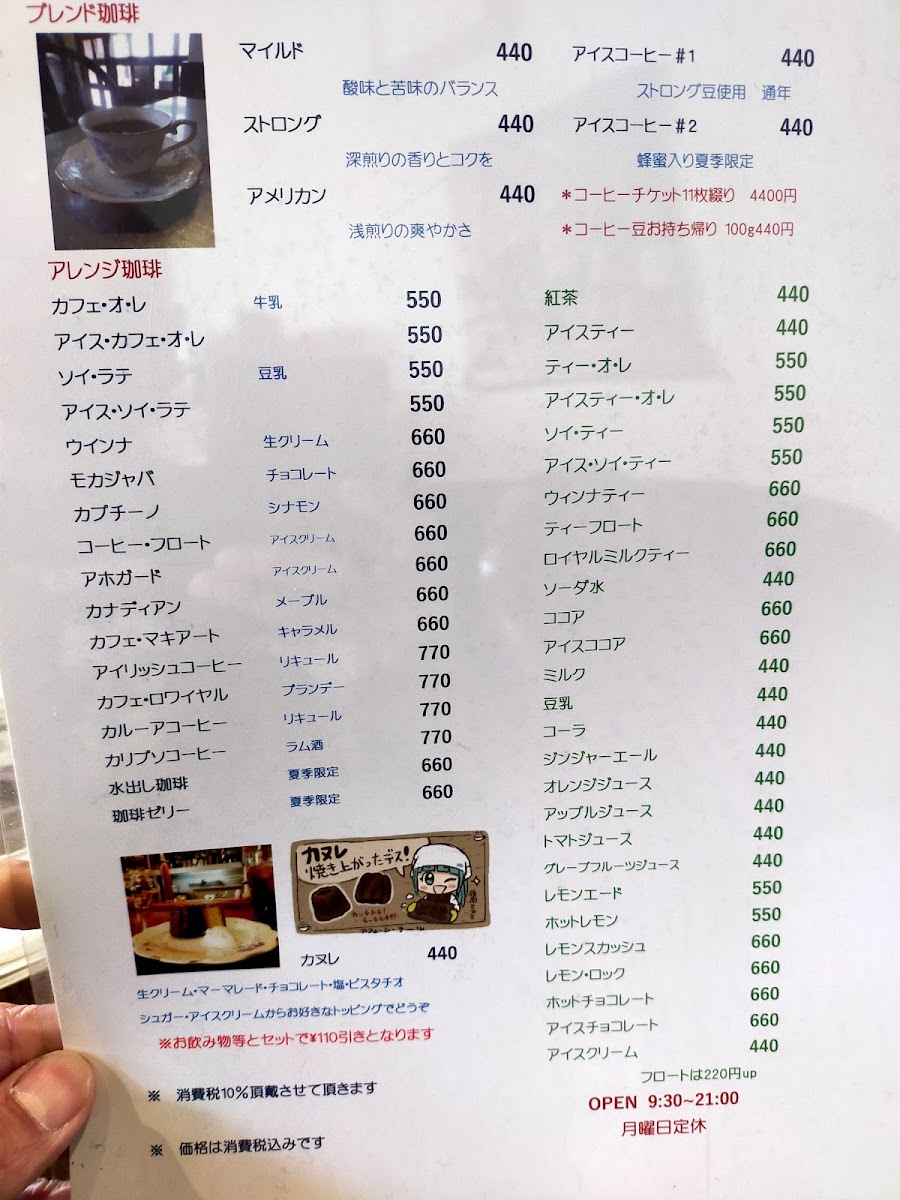 ブレンド珈琲
マイルド 440
酸味と苦味のバランス
ストロング 440
深煎りの香りとコクを
アメリカン 440
浅煎りの爽やかさ
アイスコーヒー#1 440
ストロング豆使用 通年
アイスコーヒー#2 440
蜂蜜入り夏季限定
*コーヒーチケット11枚綴り 4400円
*コーヒー豆お持ち帰り 100g440円
アレンジ珈琲
カフェ・オ・レ 牛乳 550
アイス・カフェ・オ・レ 550
ソイ・ラテ 豆乳 550
アイス・ソイ・ラテ 550
ウインナ 生クリーム 660
モカジャバ チョコレート 660
カプチーノ シナモン 660
コーヒー・フロート アイスクリーム 660
アホガード アイスクリーム 660
カナディアン メープル 660
カフェ・マキアート キャラメル 660
アイリッシュコーヒー リキュール 770
カフェ・ロワイヤル ブランデー 770
カルーアコーヒー リキュール 770
カリプソコーヒー ラム酒 770
水出し珈琲 夏季限定 660
珈琲ゼリー 夏季限定 660
紅茶 440
アイスティー 440
ティー・オ・レ 550
アイスティー・オ・レ 550
ソイ・ティー 550
アイス・ソイ・ティー 550
ウィンナティー 660
ティーフロート 660
ロイヤルミルクティー 660
ソーダ水 440
ココア 660
アイスココア 660
ミルク 440
豆乳 440
コーラ 440
ジンジャーエール 440
オレンジジュース 440
アップルジュース 440
トマトジュース 440
グレープフルーツジュース 440
レモンエード 550
ホットレモン 550
レモンスカッシュ 660
レモン・ロック 660
ホットチョコレート 660
アイスチョコレート 660
アイスクリーム 440
フロートは220円up
OPEN 9:30~21:00
月曜日定休
カヌレ
焼き上がったデス!
カヌレ 440
生クリーム・マーマレード・チョコレート・塩・ピスタチオ
シュガー・アイスクリームからお好きなトッピングでどうぞ
※お飲み物等とセットで¥110引きとなります
※ 消費税10%頂戴させて頂きます
※ 価格は消費税込みです